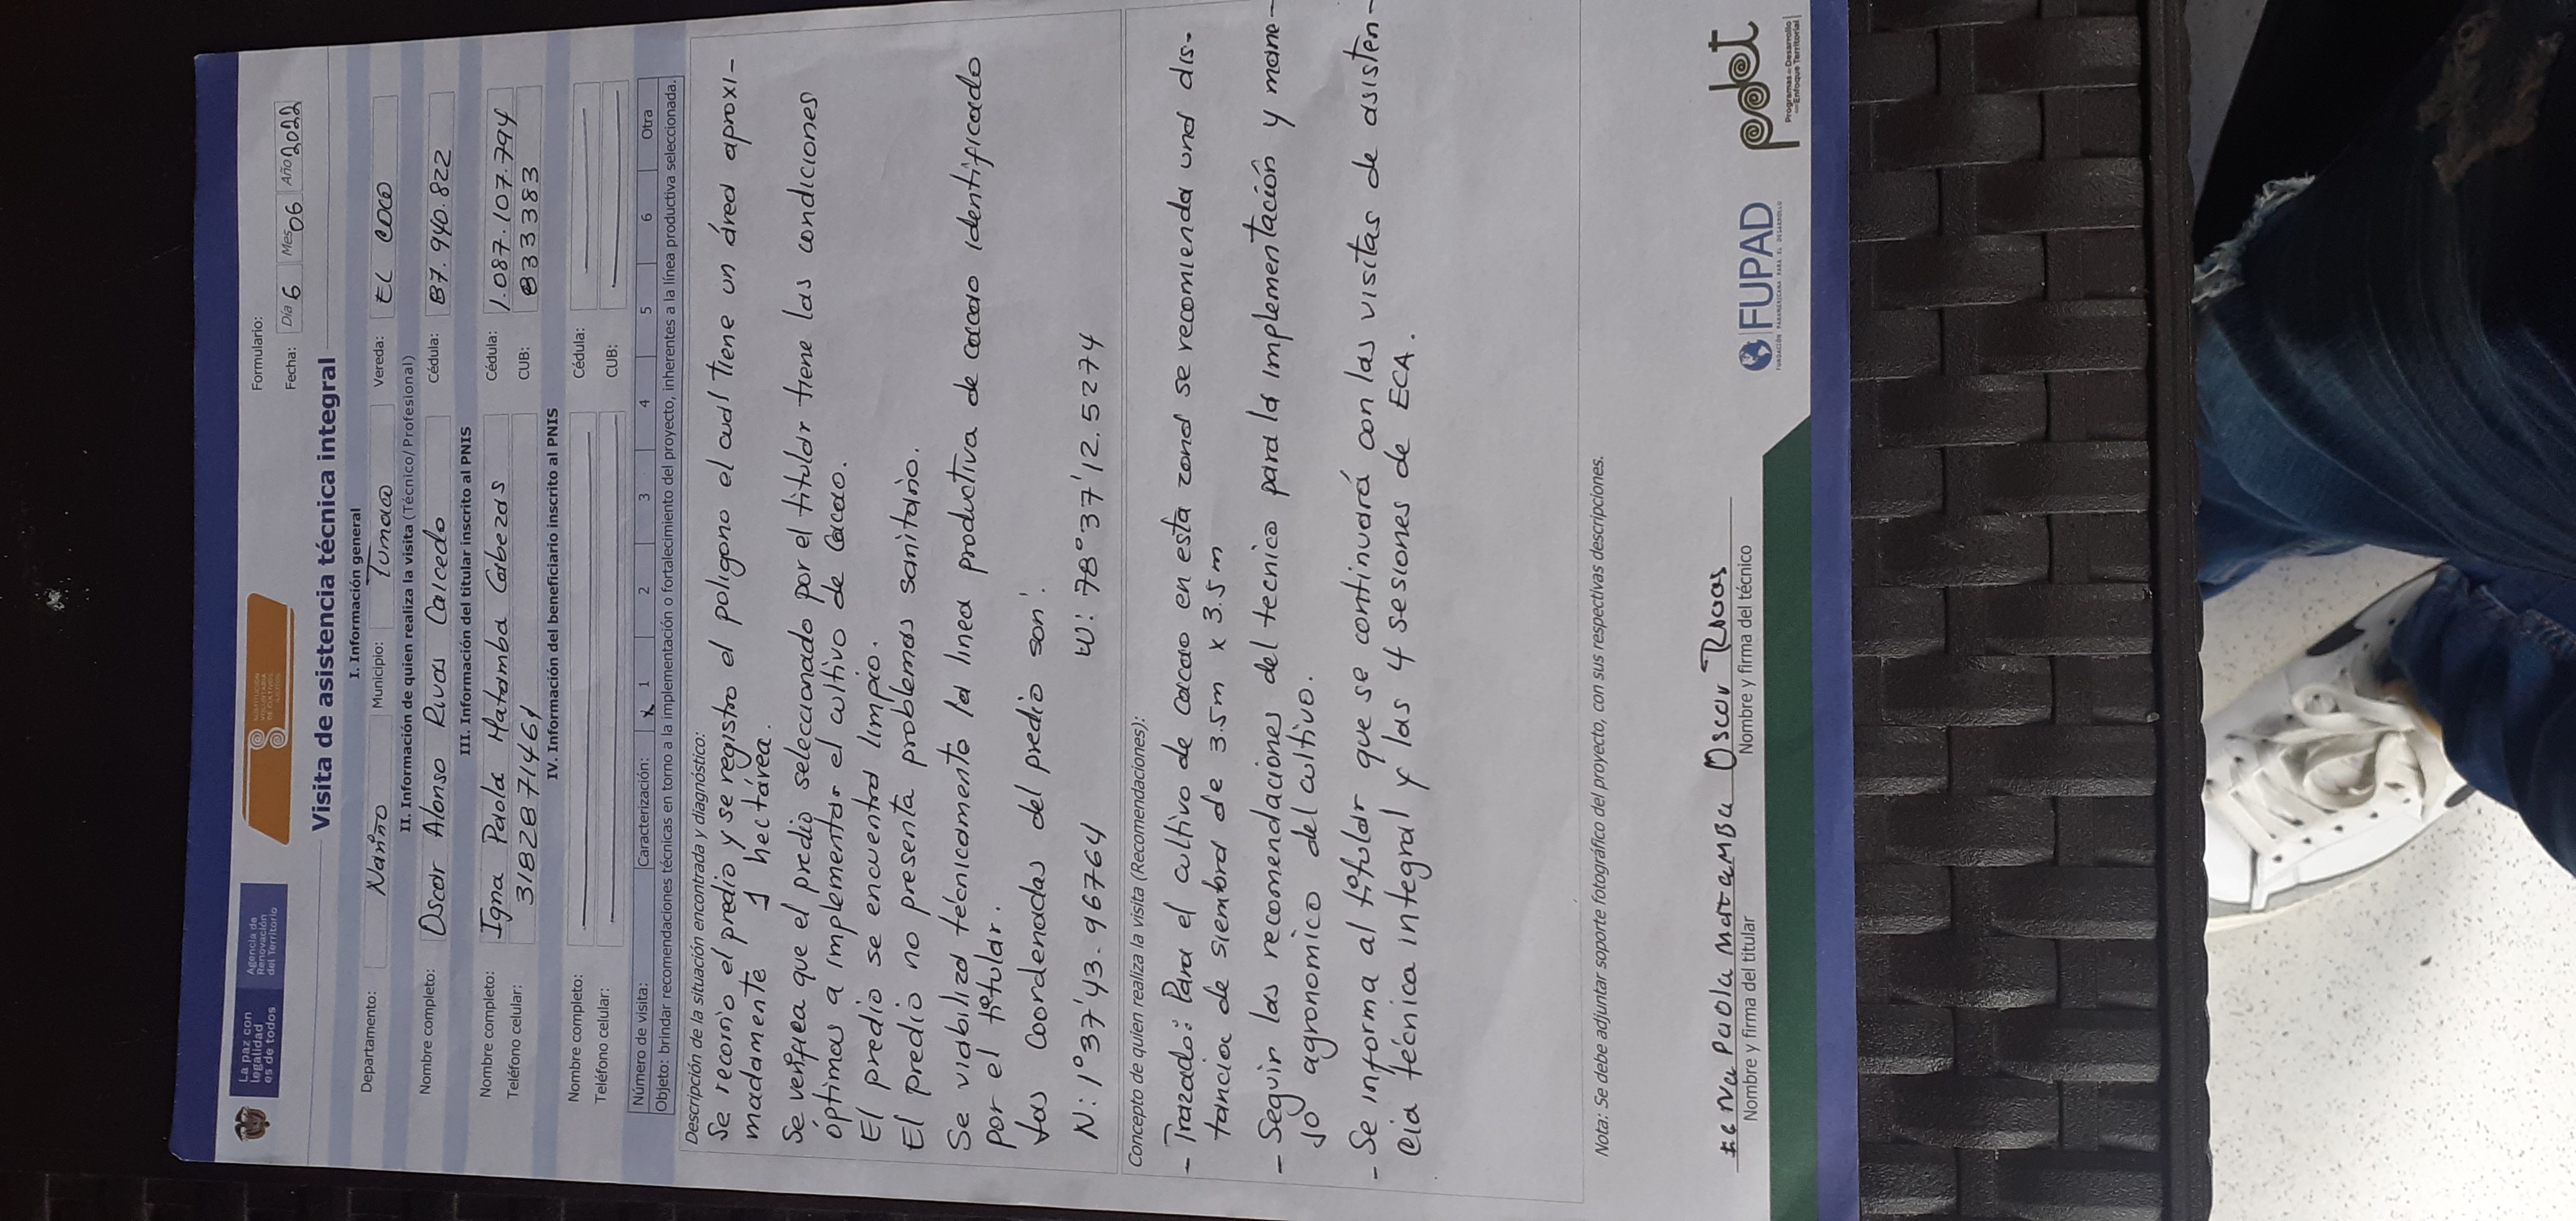 La paz con
legalidad
es de todos
Agencia de
Renovación
del Territorio
SUSTITUCIÓN
VOLUNTARIA
DE CULTIVOS
ILÍCITOS
Formulario:
Fecha: Día 6 Mes 06 Año 2022
Visita de asistencia técnica integral
I. Información general
Departamento: Nariño Municipio: Tumaco Vereda: EL COCO
II. Información de quien realiza la visita (Técnico/Profesional)
Nombre completo: Oscar Alonso Rivas Calcedo Cédula: 87.940.822
III. Información del titular inscrito al PNIS
Nombre completo: Igna Paola Matamba Cabezas Cédula: 1.087.107.794
Teléfono celular: 3182871461 CUB: 833383
IV. Información del beneficiario inscrito al PNIS
Nombre completo: Cédula:
Teléfono celular: CUB:
Número de visita: Caracterización: x 1 2 3 4 5 6 Otra
Objeto: brindar recomendaciones técnicas en torno a la implementación o fortalecimiento del proyecto, inherentes a la línea productiva seleccionada.
Descripción de la situación encontrada y diagnóstico:
Se recorrio el predio y se registro el poligono el cual tiene un área aproxi-
madamente 1 hectárea.
Se verifica que el predio seleccionado por el titular tiene las condiciones
óptimas a implementar el cultivo de Cacao.
El predio se encuentra limpio.
El predio no presenta problemas sanitario.
Se viabiliza técnicamente la linea productiva de cacao identificado
por el titular.
Las Coordenadas del predio son:
N: 1°37'43.96764 W: 78°37'12.5274
Concepto de quien realiza la visita (Recomendaciones):
- Trazado: Para el cultivo de cacao en esta zona se recomienda una dis-
tancia de siembra de 3.5m x 3.5m
- Seguir las recomendaciones del tecnico para la implementación y mane-
jo agronomico del cultivo.
- Se informa al titular que se continuará con las visitas de asisten-
cia técnica integral y las 4 sesiones de ECA.
Nota: Se debe adjuntar soporte fotográfico del proyecto, con sus respectivas descripciones.
Paola MatAMBa Oscar Rivas
Nombre y firma del titular Nombre y firma del técnico
FUPAD
FUNDACIÓN PANAMERICANA PARA EL DESARROLLO
pdet
Programas de Desarrollo
con Enfoque Territorial